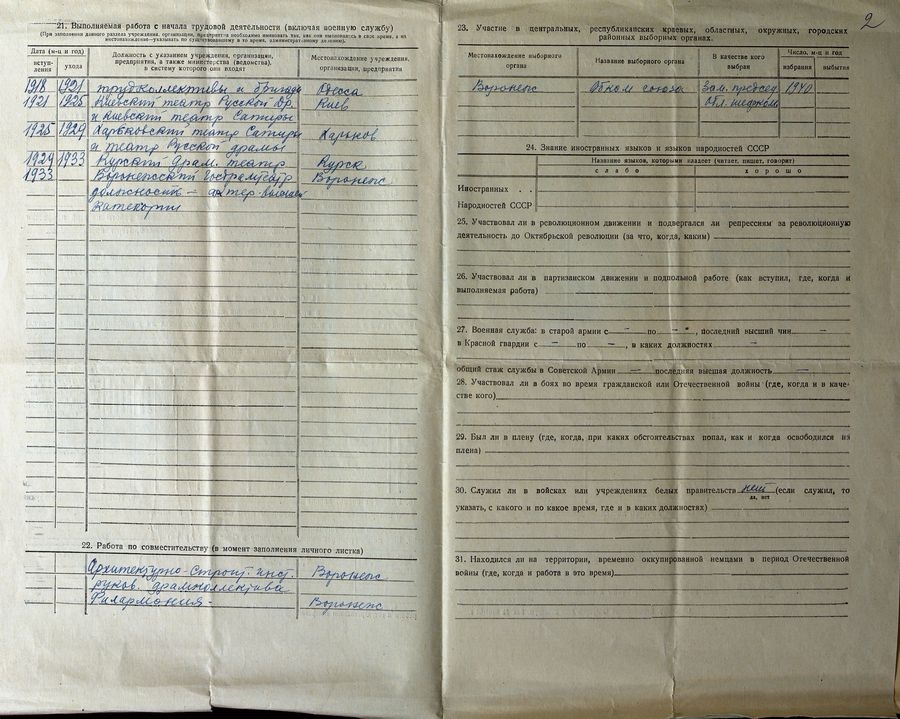 21. Выполняемая работа с начала трудовой деятельности (включая военную службу)
(При заполнении данного раздела учреждения, организации, предприятия необходимо именовать так, как они назывались в свое время, а их
местонахождение—указывать по существовавшему в то время, административному делению).
Дата (м-ц и год)
вступ-
ления
ухода
Должность с указанием учреждения, организации,
предприятия, а также министерства (ведомства),
в систему которого они входят
Местонахождение учреждения,
организации, предприятия
1918 1921 трудколлективы и бригады Одесса
1921 1925 Киевский театр Русской Др. Киев
и Киевский театр Сатиры
1925 1929 Харьковский театр Сатиры Харьков
и театр Русской драмы
1929 1933 Курский драм. театр Курск
1933 Воронежский Гостеатр Воронеж
должность – актер высшей
категории
22. Работа по совместительству (в момент заполнения личного листка)
Архитектурно-Строит. инст. Воронеж
руков. драмколлектива
Филармония - Воронеж
2
23. Участие в центральных, республиканских краевых, областных, окружных, городских
районных выборных органах.
Местонахождение выборного
органа
Название выборного органа
В качестве кого
выбран
Число, м-ц и год
избрания
выбытия
Воронеж Обком союза Зам. председ. 1940
Обл. шефком
24. Знание иностранных языков и языков народностей СССР
Название языков, которыми владеет (читает, пишет, говорит)
слабо хорошо
Иностранных . .
Народностей СССР
25. Участвовал ли в революционном движении и подвергался ли репрессиям за революционную
деятельность до Октябрьской революции (за что, когда, каким)
26. Участвовал ли в партизанском движении и подпольной работе (как вступил, где, когда и
выполняемая работа)
27. Военная служба: в старой армии с – по – , последний высший чин –
в Красной гвардии с – по – , в каких должностях –
общий стаж службы в Советской Армии – последняя высшая должность –
28. Участвовал ли в боях во время гражданской или Отечественной войны (где, когда и в каче-
стве кого)
29. Был ли в плену (где, когда, при каких обстоятельствах попал, как и когда освободился из
плена)
30. Служил ли в войсках или учреждениях белых правительств нет (если служил, то
да, нет
указать, с какого и по какое время, где и в каких должностях)
31. Находился ли на территории, временно оккупированной немцами в период Отечественной
войны (где, когда и работа в это время)